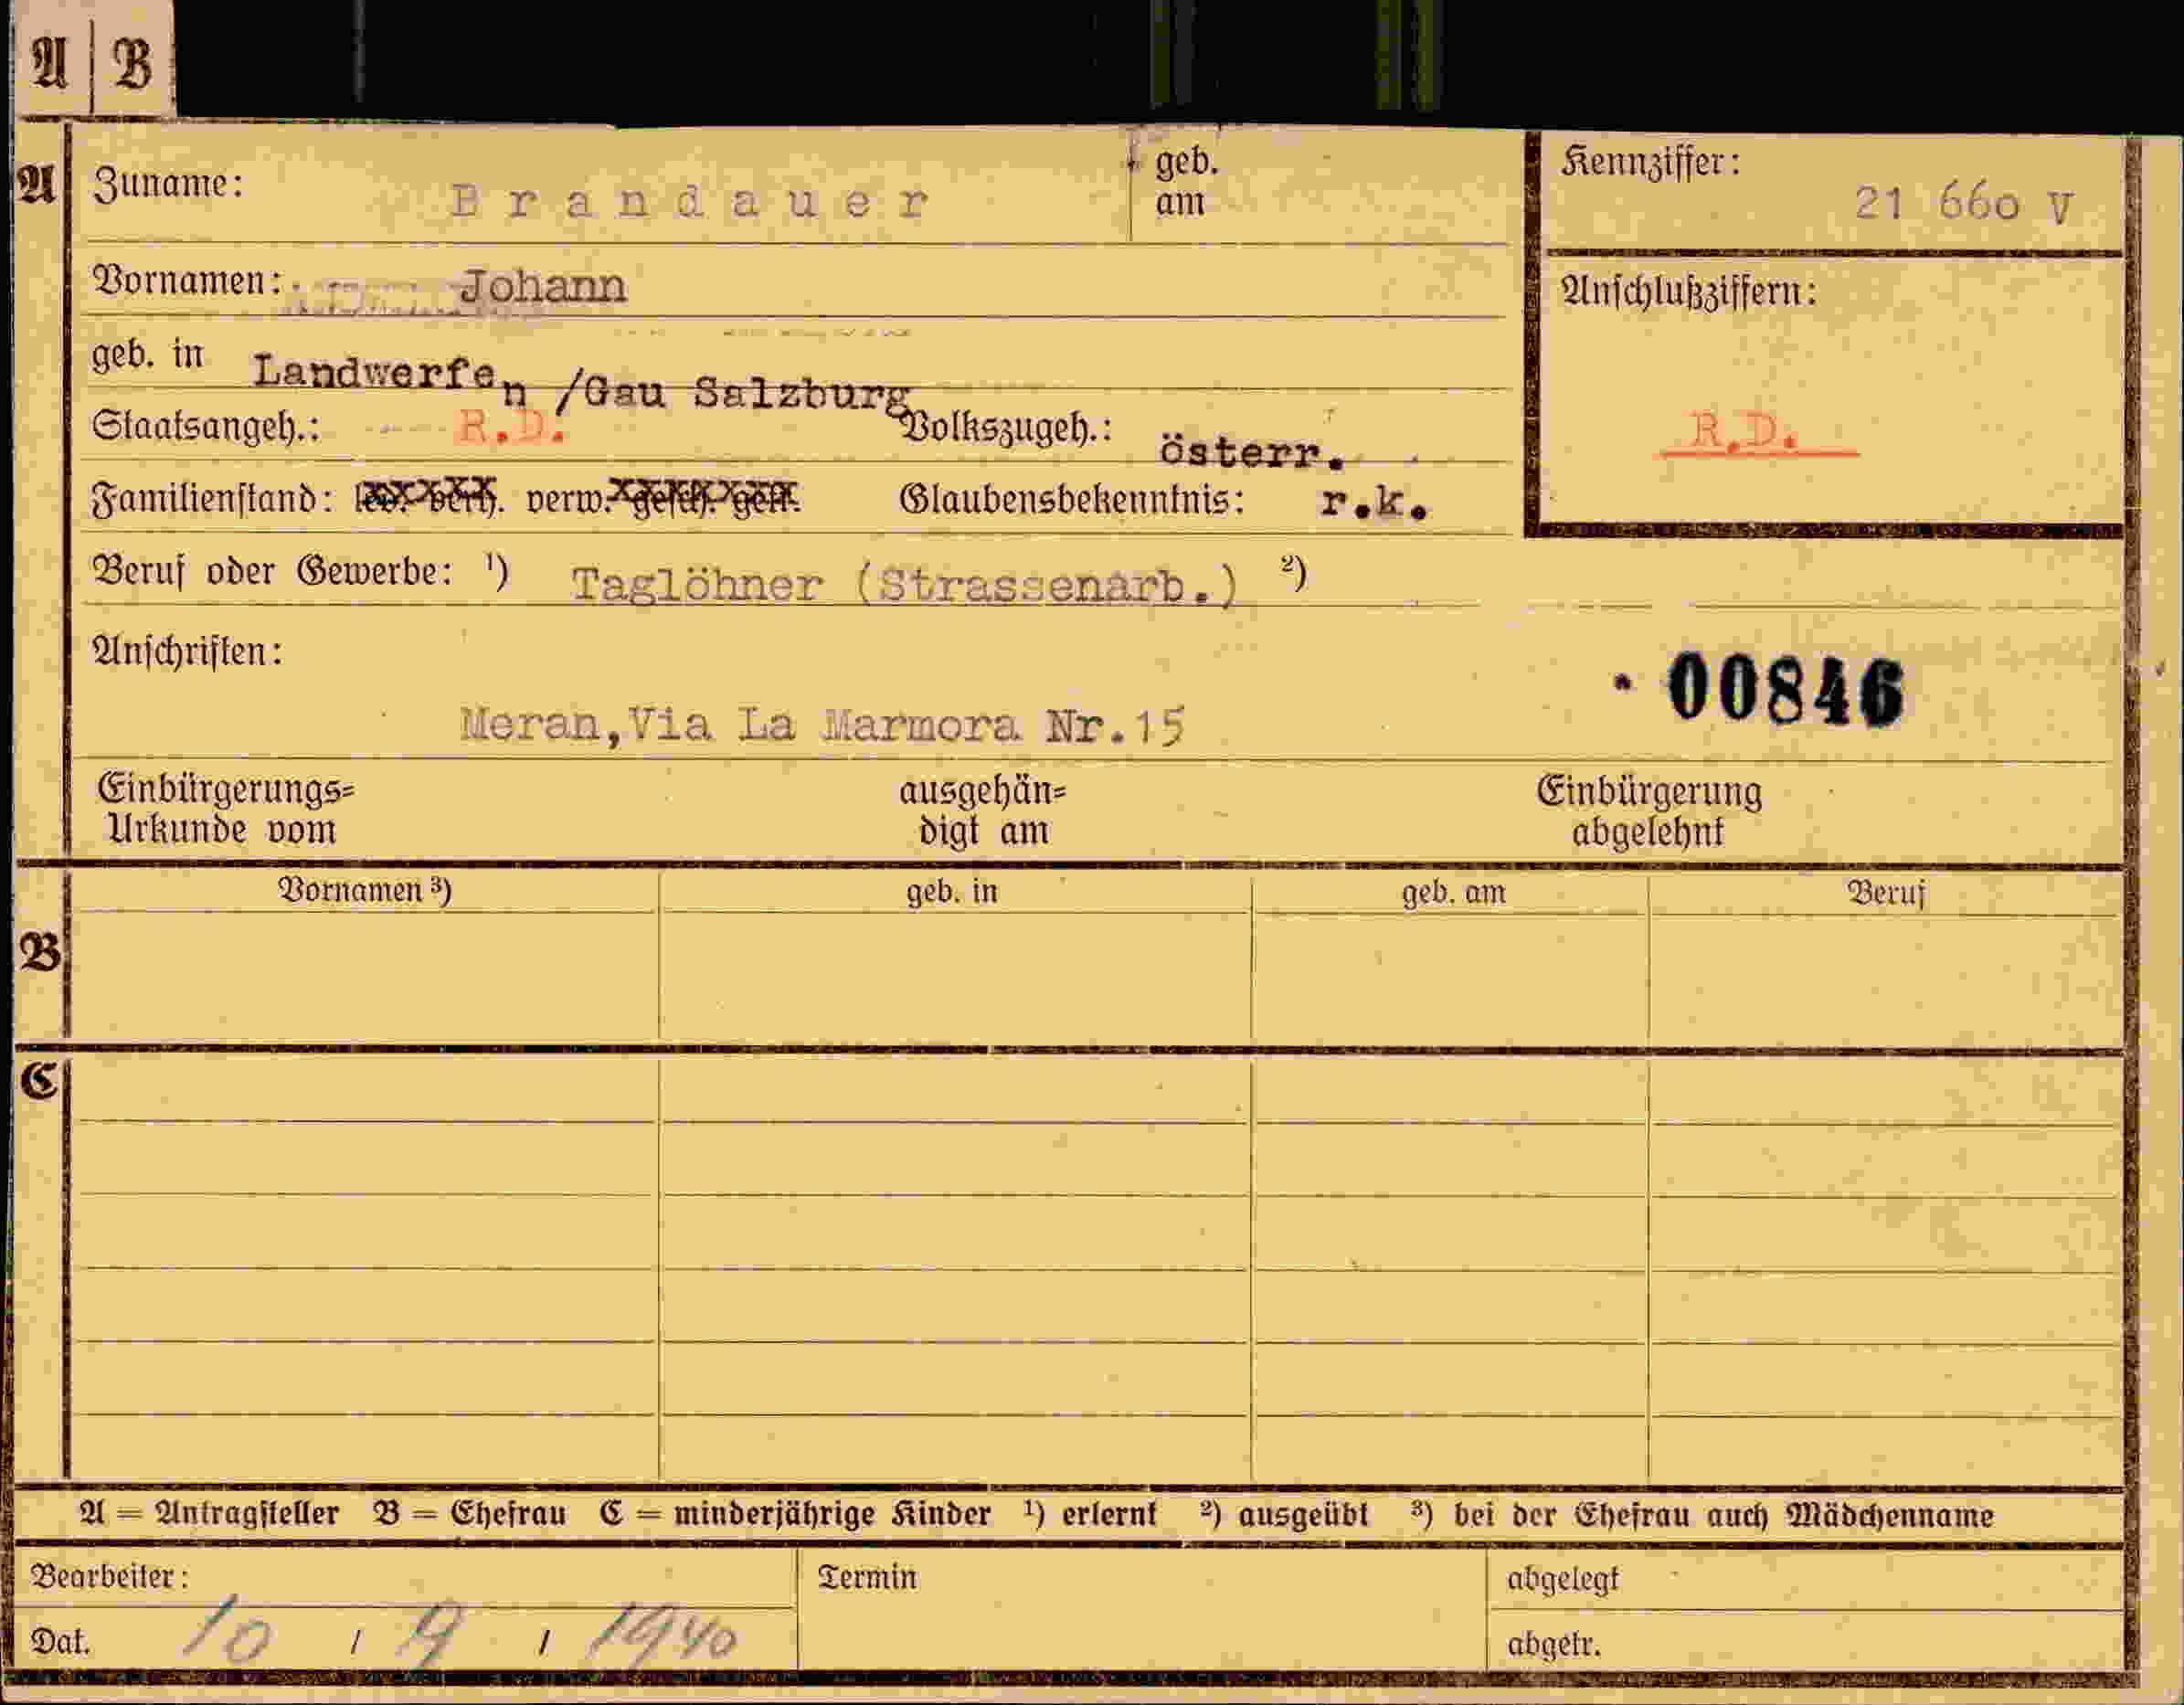 A | B
A Zuname: Brandauer geb. am
Kennziffer: 21 660 V
Vornamen: Johann
Anschlußziffern:
R.D.
geb. in Landwerfen /Gau Salzburg
Staatsangeh.: R.D. Volkszugeh.: österr.
Familienstand: led. verh. verw. gesch. getr. Glaubensbekenntnis: r.k.
Beruf oder Gewerbe: ¹) Taglöhner (Strassenarb.) ²)
Anschriften:
00846
Meran,Via La Marmora Nr.15
Einbürgerungs= ausgehän= Einbürgerung
Urkunde vom digt am abgelehnt
Vornamen ³) geb. in geb. am Beruf
B
C
A = Antragsteller B = Ehefrau C = minderjährige Kinder ¹) erlernt ²) ausgeübt ³) bei der Ehefrau auch Mädchenname
Bearbeiter: Termin abgelegt
Dat. 10 / 9 / 1940 abgetr.